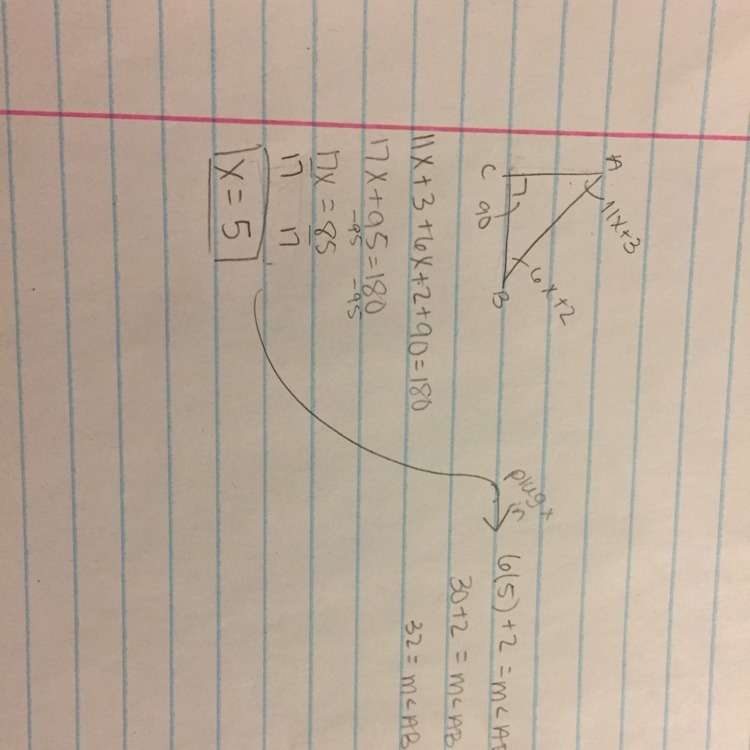 A
11x+3
C
90
6x+2
B
11x+3+6x+2+90=180
17x+95=180
-95 -95
17x = 85
17 17
x = 5
plug x
in
6(5)+2 = m<AB
30+2 = m<AB
32 = m<AB